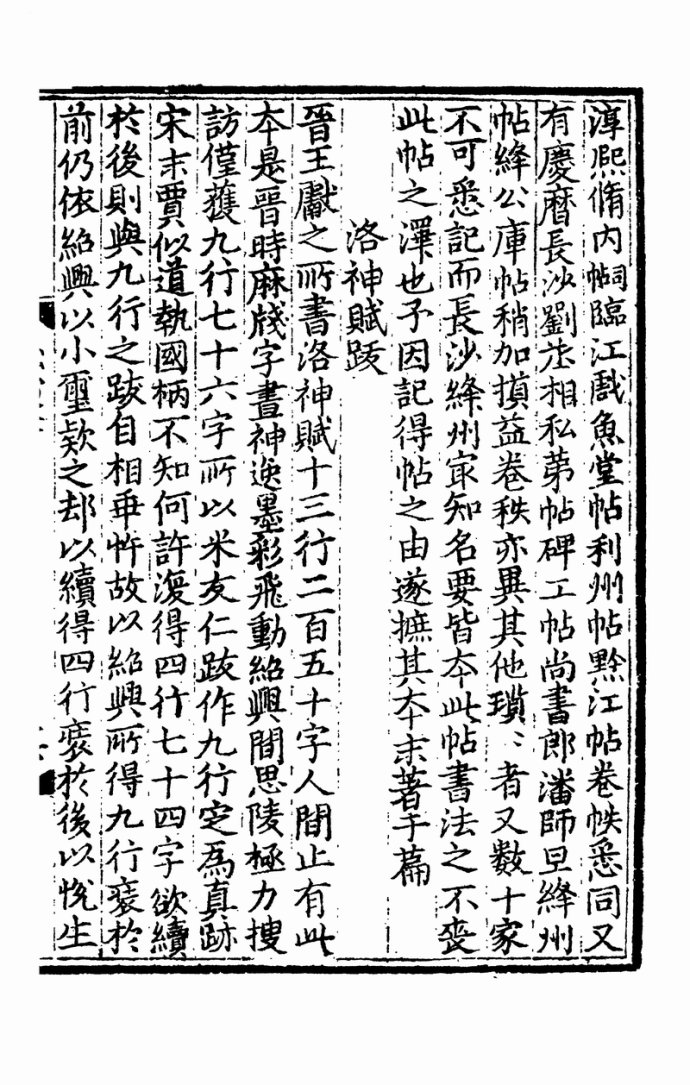 淳熙脩内帖臨江戲魚堂帖利州帖黔江帖卷帙悉同又
有慶曆長沙劉丞相私第帖碑工帖尚書郎潘師旦絳州
帖絳公庫帖稍加損益卷秩亦異其他瑣〻者又數十家
不可悉記而長沙絳州㝡知名要皆夲此帖書法之不喪
此帖之澤也予因記得帖之由遂摭其夲末著于篇
洛神賦跋
晉王獻之所書洛神賦十三行二百五十字人間止有此
夲是晉時麻牋字畫神逸墨彩飛動紹興間思陵極力搜
訪僅獲九行七十六字所以米友仁跋作九行定為真跡
宋末賈似道執國柄不知何許復得四行七十四字欲續
於後則與九行之跋自相乖忤故以紹興所得九行裝於
前仍依紹興以小璽款之却以續得四行裝於後以悅生